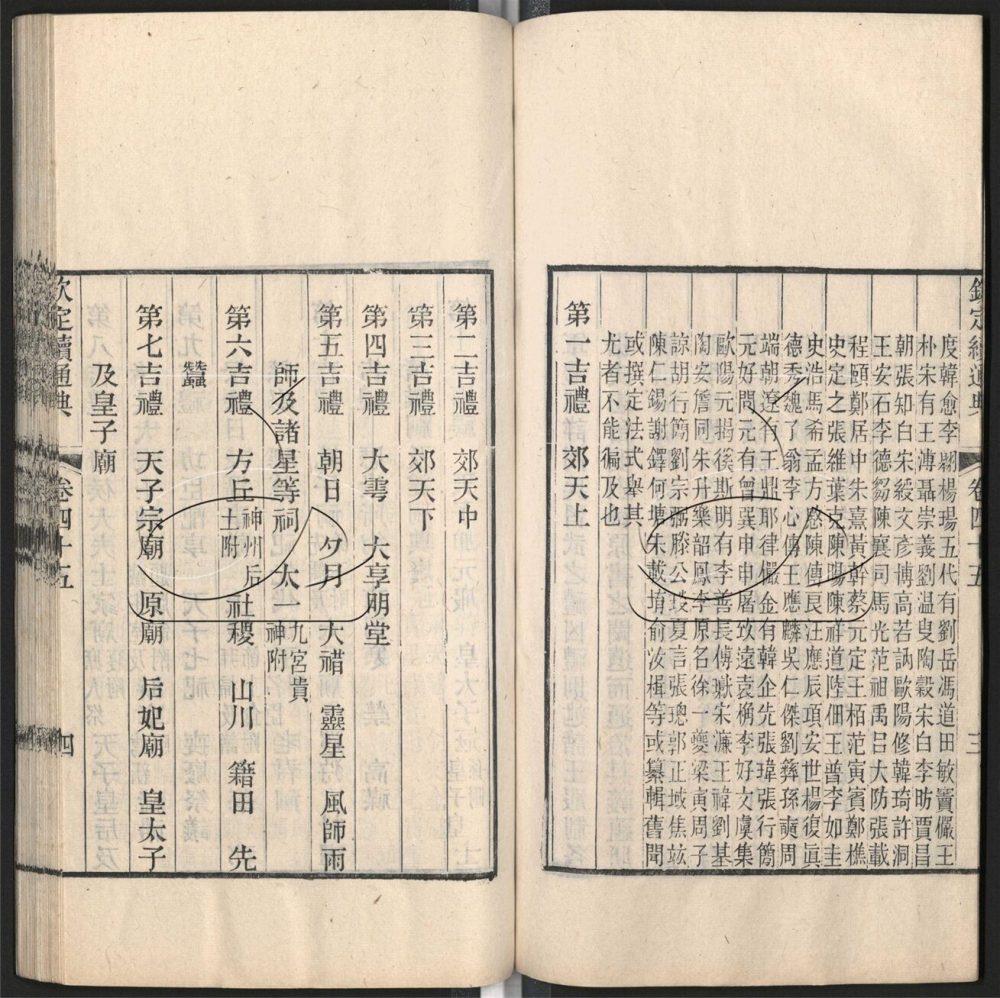 欽定續通典 卷四十五 三
度韓愈李翺楊瑒五代有劉岳馮道田敏竇儼王
朴宋有王溥聶崇義劉温叟陶穀宋白李昉賈昌
朝張知白宋綬文彦博高若訥歐陽修韓琦許洞
王安石李德芻陳襄司馬光范祖禹吕大防張載
程頤鄭居中朱熹黃幹蔡元定王栢范寅賓鄭樵
史定之張維葉克陳陳祥道陸佃王普李如圭
史浩馬希孟方慤陳傅良汪應辰項安世楊復真
德秀魏了翁李心傳王應麟吳仁傑劉彝孫奭周
端朝遼有王鼎耶律儼金有韓企先張瑋張行簡
元好問元有曾巽申申屠致遠袁桷李好文虞集
歐陽元揭徯斯明有李善長傅瓛宋濓王禕劉基
陶安詹同朱升樂韶鳳李原名徐一夔梁寅周子
諒胡行簡劉宗弼滕公琰夏言張璁郭正域焦竑
陳仁錫謝鐸何瑭朱載堉俞汝楫等或纂輯舊聞
或撰定法式舉其
尤者不能徧及也
第一吉禮 郊天上
第二吉禮 郊天中
第三吉禮 郊天下
第四吉禮 大雩 大享明堂
第五吉禮 朝日夕月 大𥜥 靈星 風師雨
師及諸星等祠 太一九宮貴神附
第六吉禮 方丘神州后土附 社稷 山川 籍田 先
蠶
第七吉禮 天子宗廟 原廟 后妃廟 皇太子
及皇子廟
欽定續通典 卷四十五 四